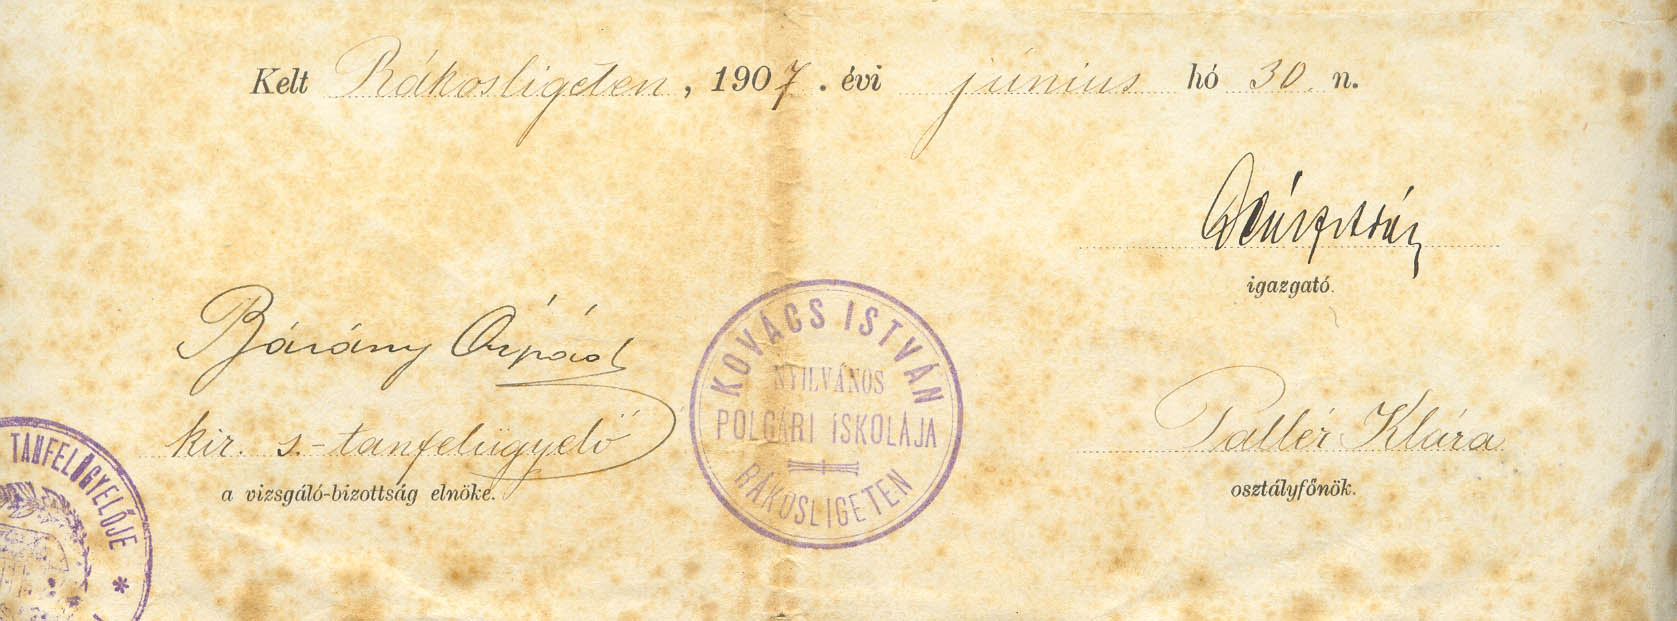 Kelt Rákosligeten, 1907. évi június hó 30. n.
igazgató.
Bárány Árpád
kir. s.-tanfelügyelő
a vizsgáló-bizottság elnöke.
KOVÁCS ISTVÁN
NYILVÁNOS
POLGÁRI ISKOLÁJA
RÁKOSLIGETEN
Pallér Klára
osztályfőnök.
TANFELÜGYELŐJE *